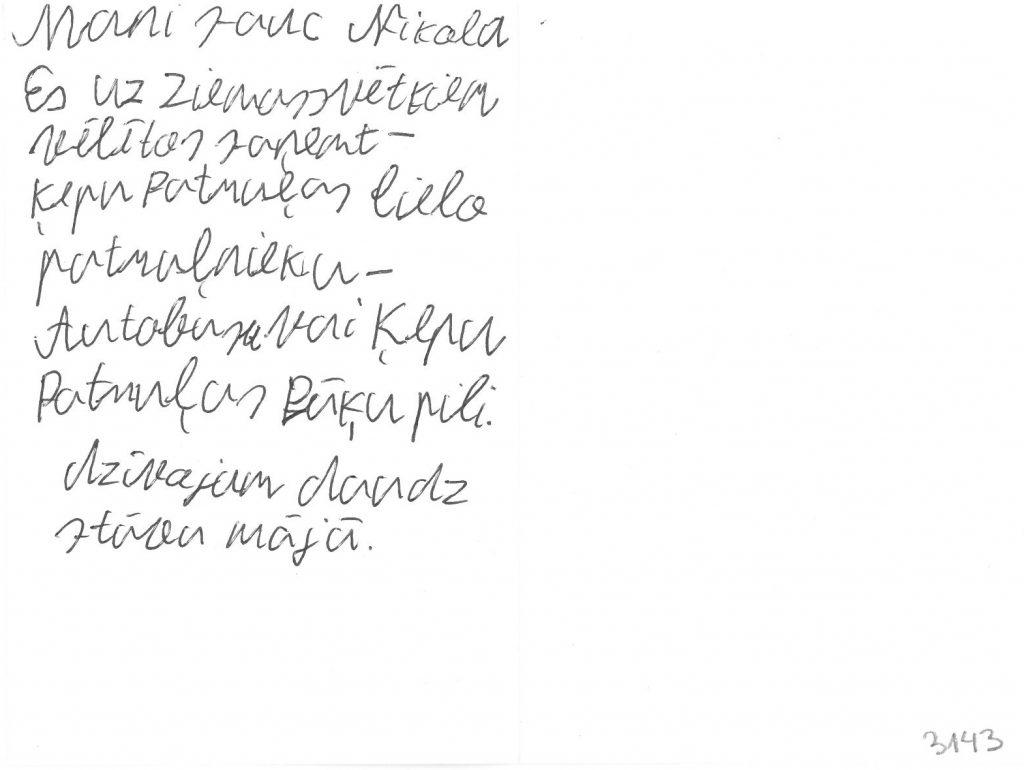 Mani sauc Nikola
Es uz Ziemassvētkiem
vēlītos saņemt -
Ķepu Patruļas lielo
patruļnieku -
Autobusu vai Ķepu
Patruļas Pūķu pili.
dzīvojam daudz
stāvu mājā.
3143